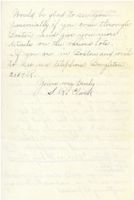 Would be glad to see you
personally if you come through
Boston and give you more
details on the various lots.
If you are in Boston and wish
to see me telephone
Yours very truly